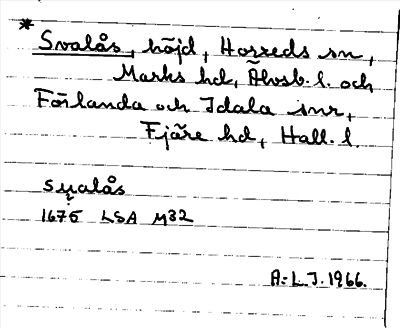 * Svalås, höjd, Horreds sn,
Marks hd, Älvsb. l. och
Förlanda och Idala snr,
Fjäre hd, Hall. l.
Sualås
1675 LSA M32
A-L.J. 1966.